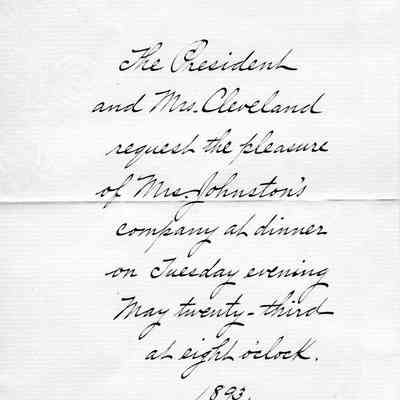 The President
and Mrs. Cleveland
request the pleasure
of Mrs. Johnston's
company at dinner
on Tuesday evening
May twenty-third
at eight o'clock.
1893.